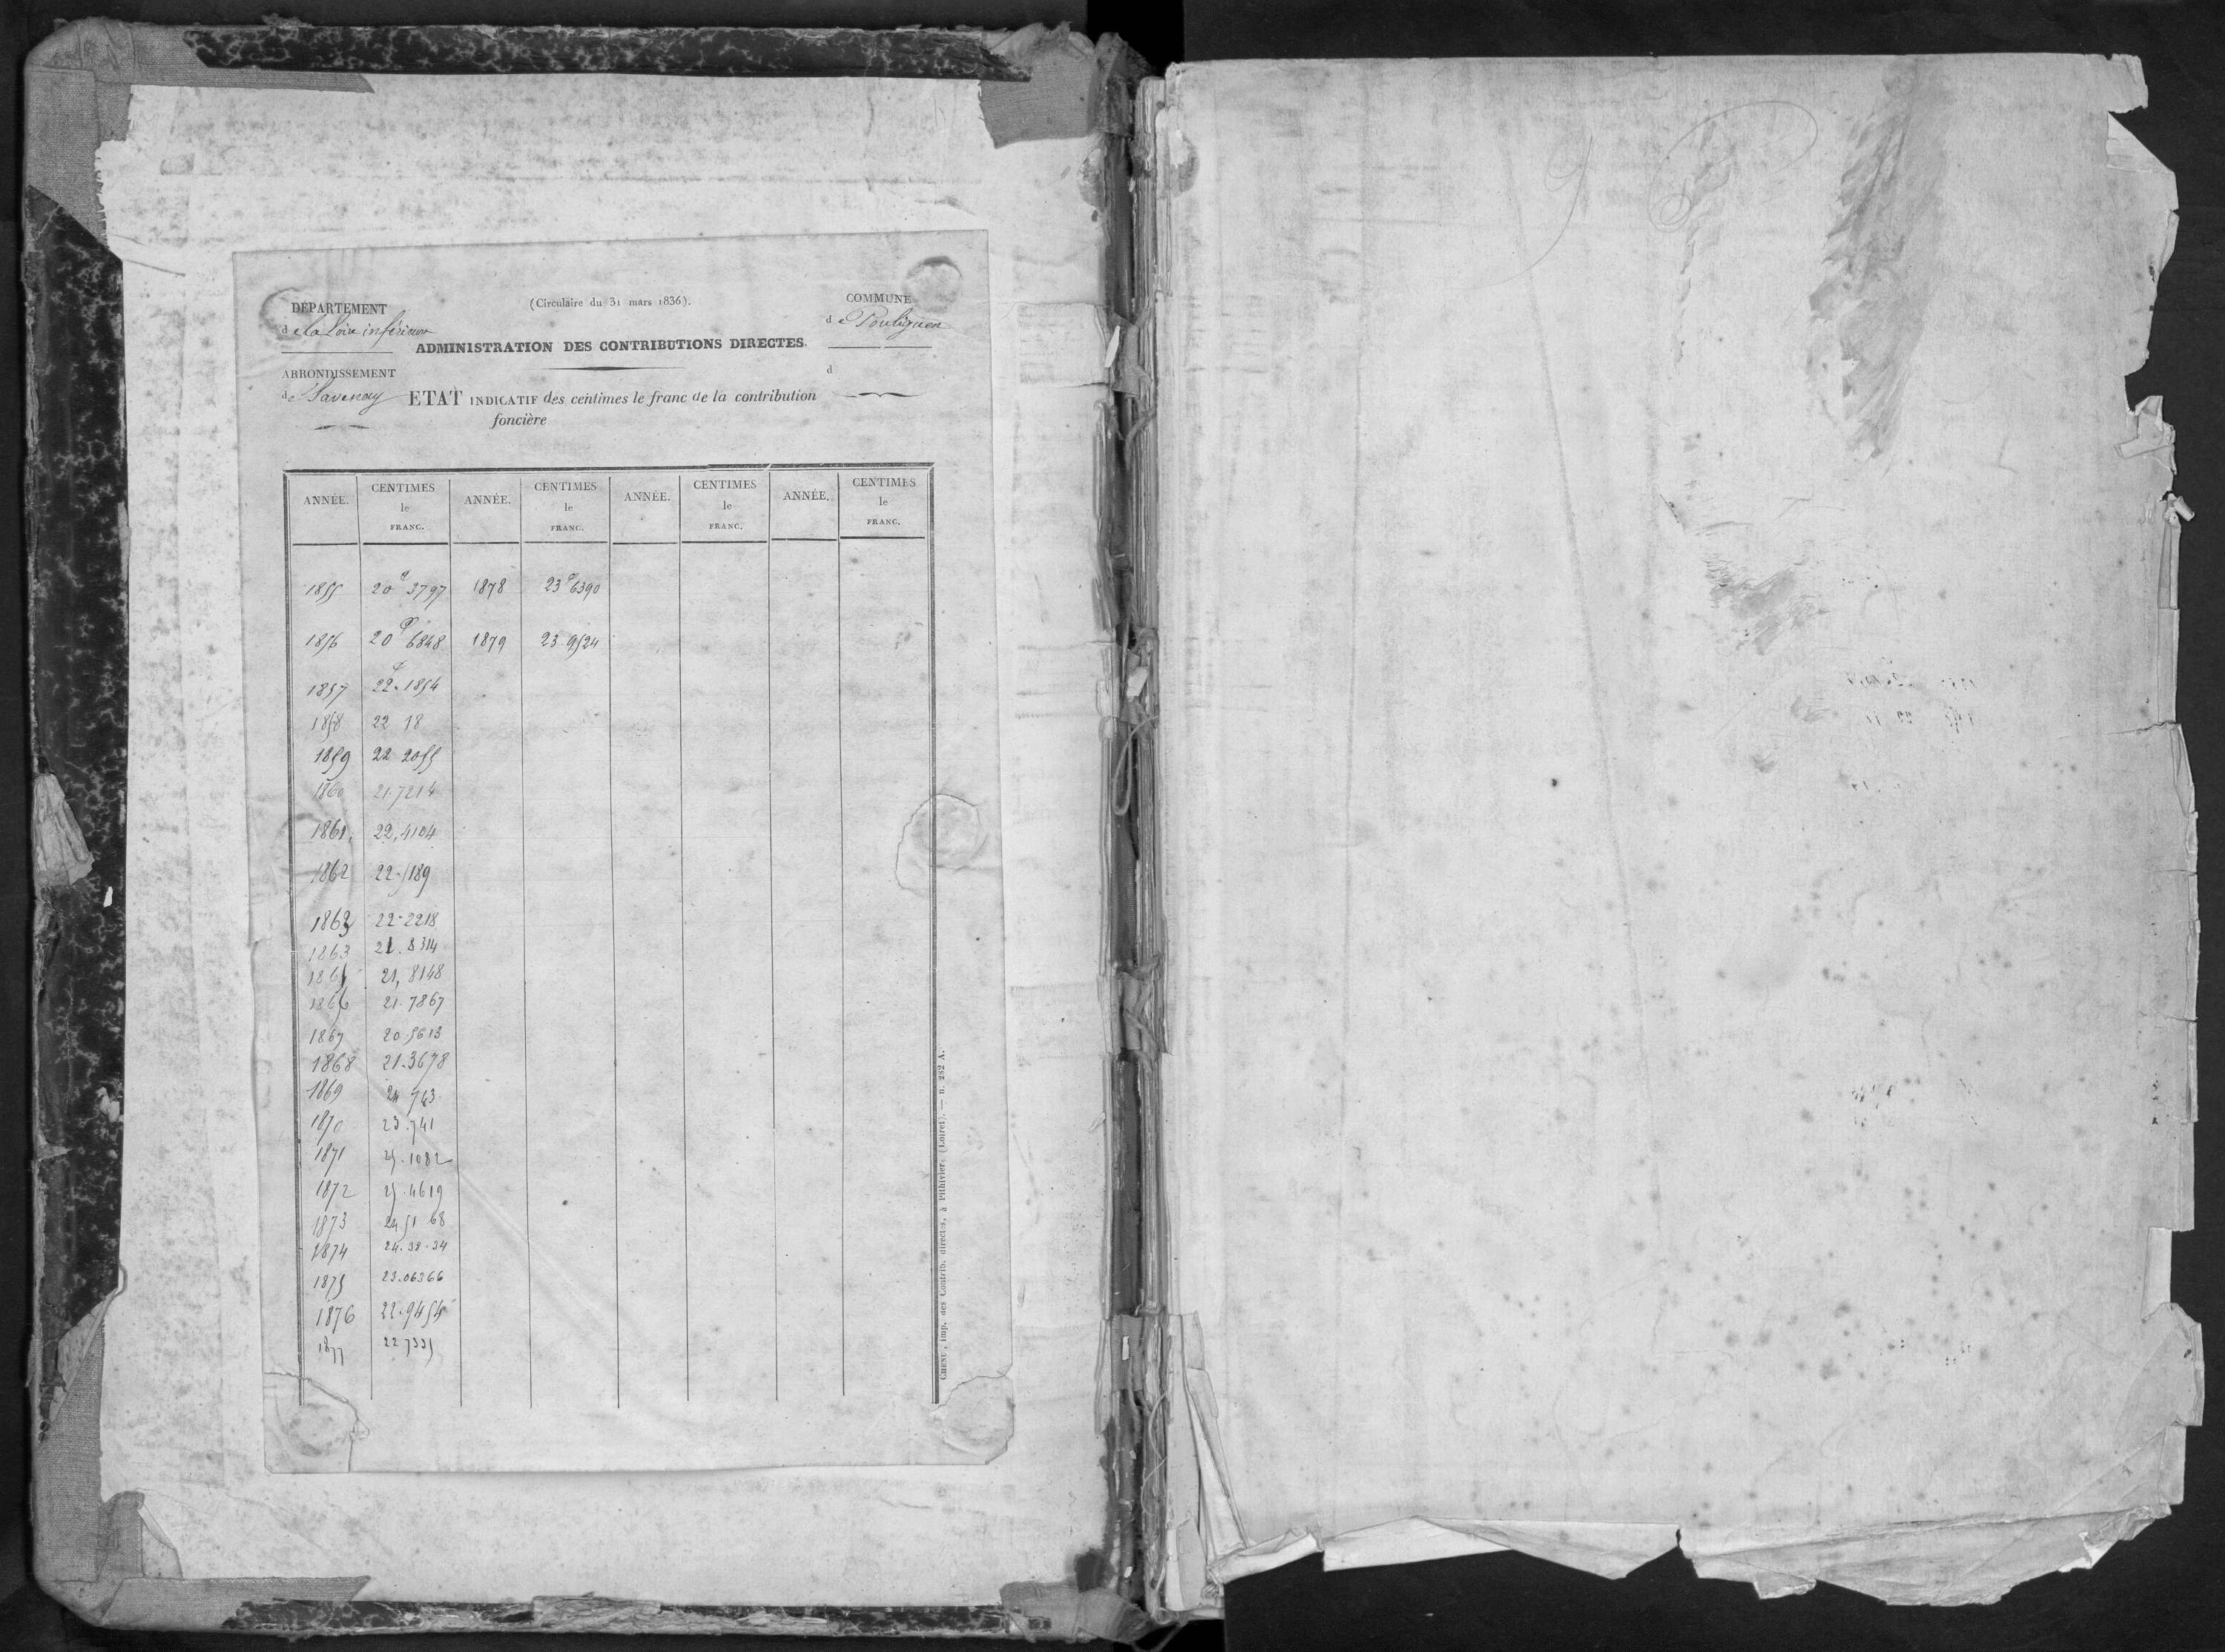 DÉPARTEMENT
de la Loire inférieure
ARRONDISSEMENT
de Savenay
(Circulaire du 31 mars 1836).
ADMINISTRATION DES CONTRIBUTIONS DIRECTES.
COMMUNE
de Pouliguen
d
ETAT INDICATIF des centimes le franc de la contribution
foncière
ANNÉE. CENTIMES le FRANC. ANNÉE. CENTIMES le FRANC. ANNÉE. CENTIMES le FRANC. ANNÉE. CENTIMES le FRANC.
1855 20c 3797 1878 23c 6390
1856 20c 6848 1879 23.9524
1857 22c 1854
1858 22 18
1859 22 2055
1860 21.7214
1861. 22,4104
1862 22-5189
1863 22-2218
1863 21.8314
1865 21,8148
1866 21.7867
1867 20.5613
1868 21.3678
1869 24 743
1870 23.741
1871 25.1082
1872 25.4619
1873 24 51 68
1874 24.38.34
1875 23.06366
1876 22.9454
1877 22 7335
CHENU, imp. des Contrib. directes, à Pithiviers (Loiret). — n. 282 A.